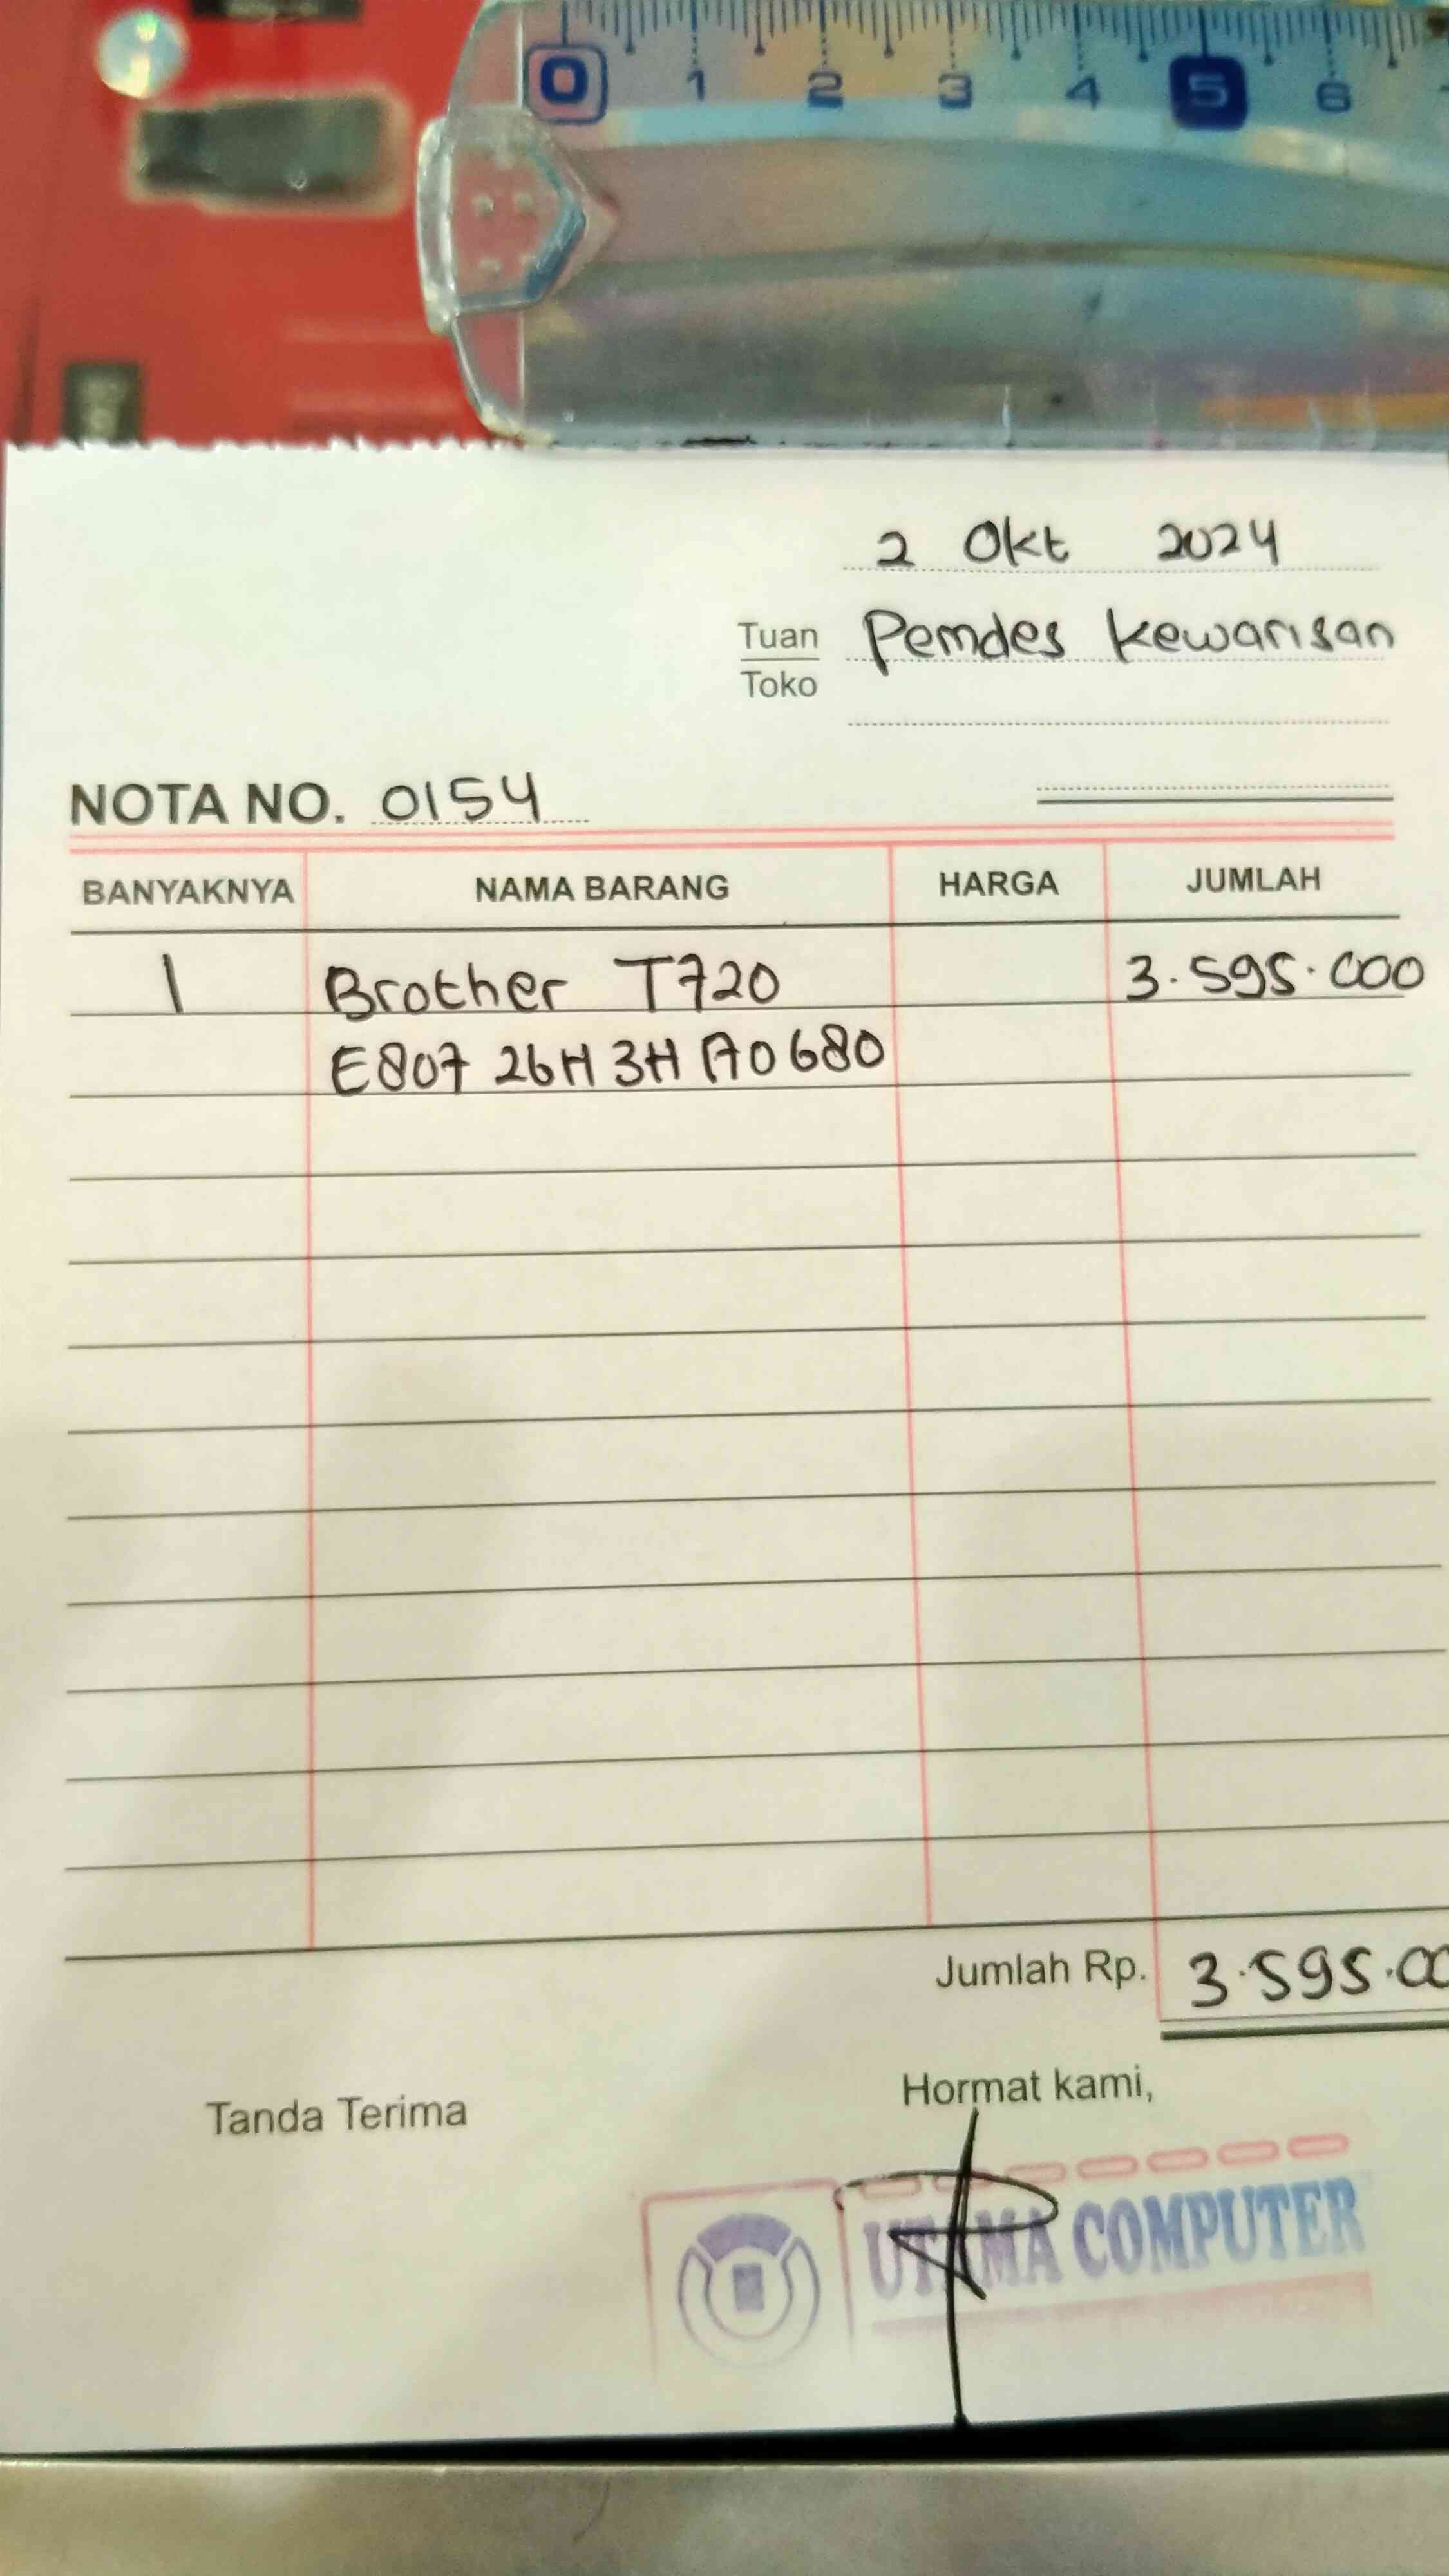 0 1 2 3 4 5 6
2 Okt 2024
Tuan Pemdes Kewarisan
Toko
NOTA NO. 0154
BANYAKNYA NAMA BARANG HARGA JUMLAH
1 Brother T720 3.595.000
E807 26H 3H A0680
Jumlah Rp. 3.595.00
Hormat kami,
Tanda Terima
UTAMA COMPUTER